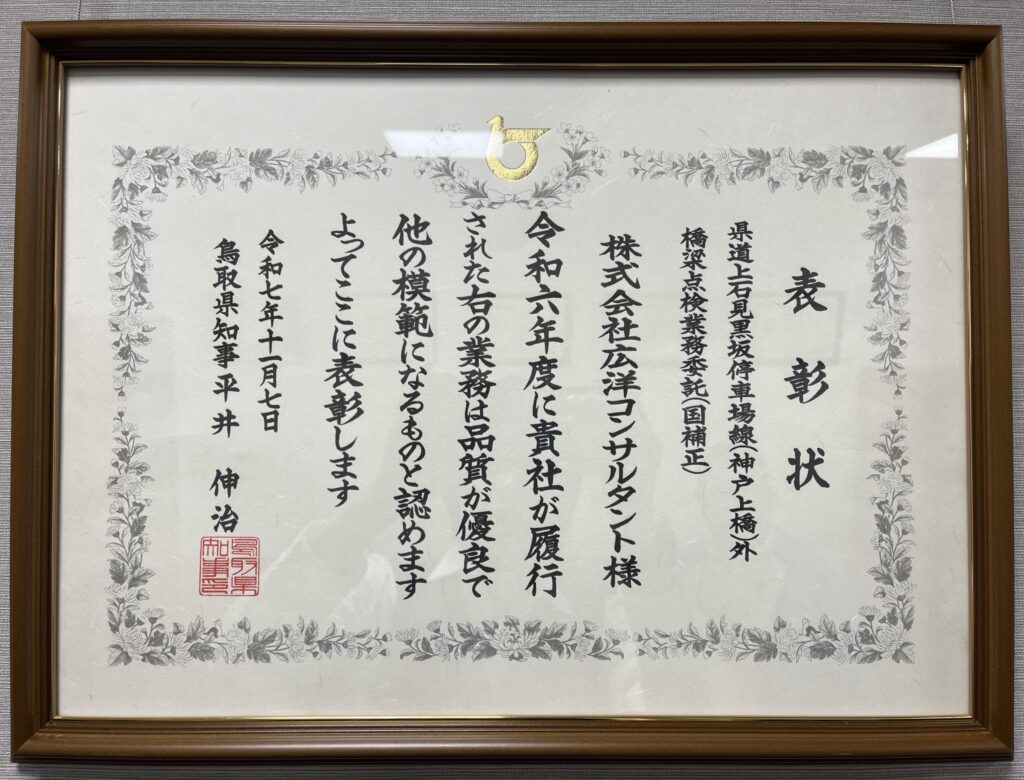 表彰状
県道上石見黒坂停車場線(神戸上橋)外
橋梁点検業務委託(国補正)
株式会社広洋コンサルタント様
令和六年度に貴社が履行
された右の業務は品質が優良で
他の模範になるものと認めます
よってここに表彰します
令和七年十一月七日
鳥取県知事平井　伸治
鳥取県
知事印